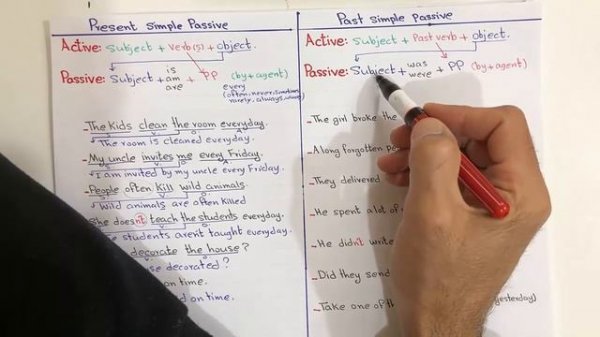 Present Simple Passive
Active: Subject + verb(s) + object.
Passive: Subject + is am are + PP (by + agent)
every
(often, never, sometimes
rarely, always, usually)
_The Kids clean the room everyday.
_The room is cleaned everyday.
_My uncle invites me every Friday.
_I am invited by my uncle every Friday.
_People often Kill wild animals.
Wild animals are often Killed
She doesn't teach the students everyday.
students aren't taught everyday.
decorate the house?
decorated?
on time.
on time.
Past Simple Passive
Active: Subject + Past verb + object.
Passive: Subject + was were + PP (by + agent)
_The girl broke the
_Along forgotten
_They delivered
_He spent alot of
_He didn't write
_Did they send
_Take one of the yesterday)